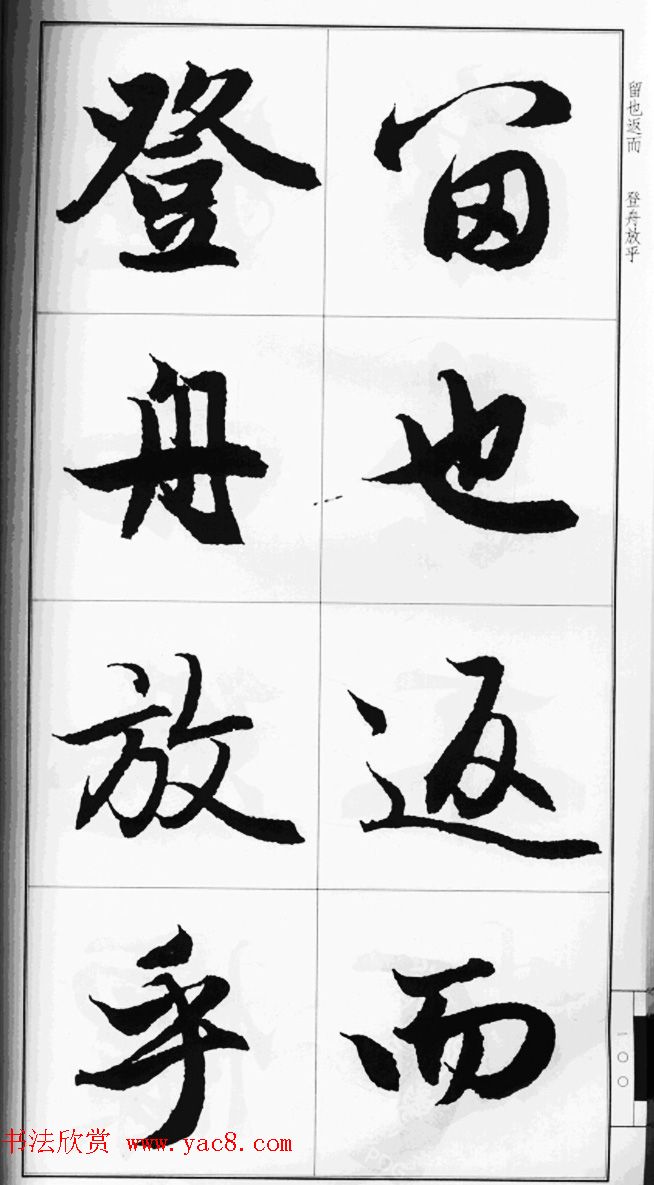 留也返而
登舟放乎
留也返而 登舟放乎
一〇〇
书法欣赏 www.yac8.com